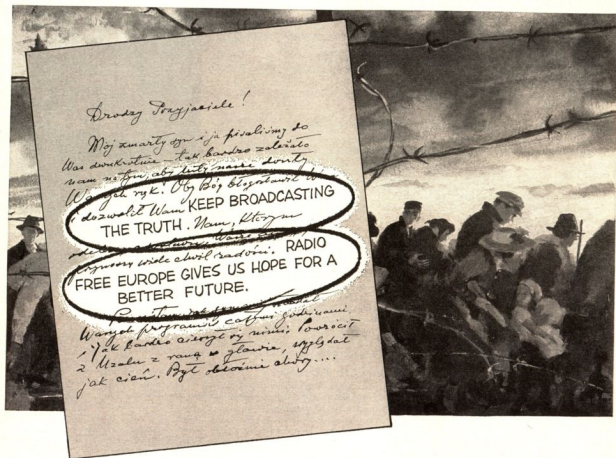 Drodzy Przyjaciele!
Mój zmarły syn i ja pisaliśmy do
Was dwukrotnie, tak bardzo zależało
nam na tym, aby listy nasze doszły
rąk! Oby Bóg błogosławił
i dozwolił Wam KEEP BROADCASTING
THE TRUTH. Nam, którym
wiele chwil radości. RADIO
FREE EUROPE GIVES US HOPE FOR A
BETTER FUTURE.
Waszych programów całymi godzinami
i jak bardzo cieszył się nimi! Powrócił
z Uralu z raną w głowie, wyglądał
jak cień. Był obłożnie chory....